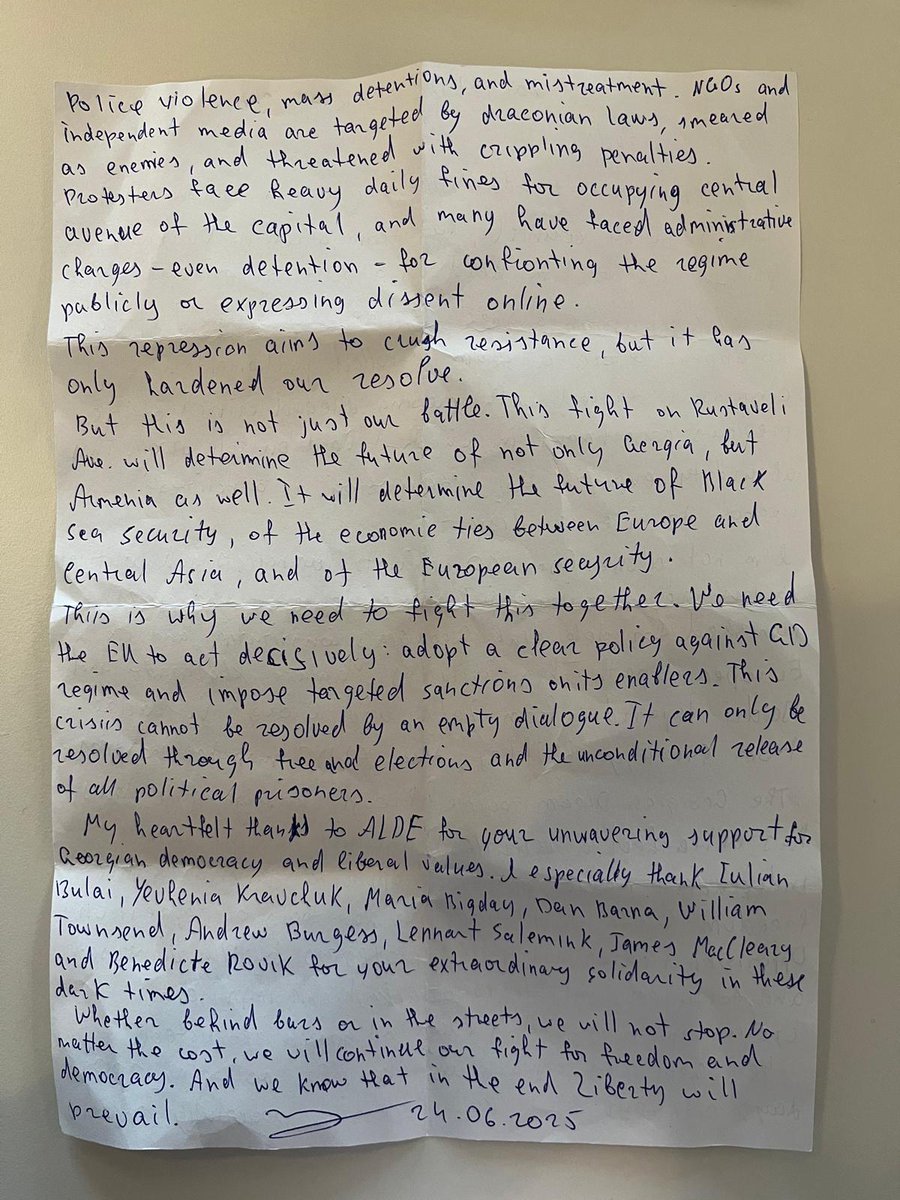 Police violence, mass detentions, and mistreatment. NGOs and
independent media are targeted by draconian laws, smeared
as enemies, and threatened with crippling penalties.
Protesters face heavy daily fines for occupying central
avenue of the capital, and many have faced administrative
charges - even detention - for confronting the regime
publicly or expressing dissent online.
This repression aims to crush resistance, but it has
only hardened our resolve.
But this is not just our battle. This fight on Rustaveli
Ave. will determine the future of not only Georgia, but
Armenia as well. It will determine the future of Black
Sea security, of the economic ties between Europe and
Central Asia, and of the European security.
This is why we need to fight this together. We need
the EU to act decisively: adopt a clear policy against GD
regime and impose targeted sanctions on its enablers. This
crisis cannot be resolved by an empty dialogue. It can only be
resolved through free and elections and the unconditional release
of all political prisoners.
My heartfelt thanks to ALDE for your unwavering support for
Georgian democracy and liberal values. I especially thank Iulian
Bulai, Yevhenia Kravchuk, Maria Bigday, Dan Barna, William
Townsend, Andrew Burgess, Lennart Salemink, James MacCleary
and Benedicte Rovik for your extraordinary solidarity in these
dark times.
Whether behind bars or in the streets, we will not stop. No
matter the cost, we will continue our fight for freedom and
democracy. And we know that in the end Liberty will
prevail. 24.06.2025